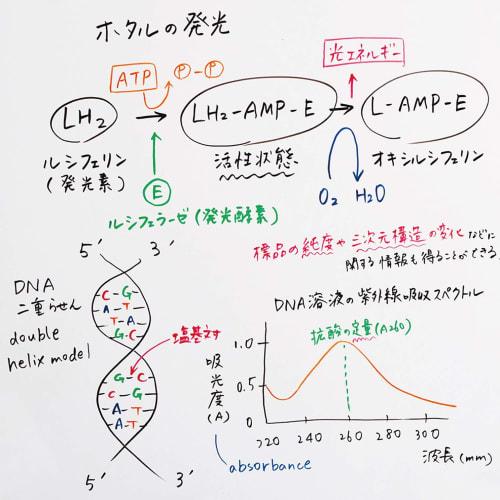 ホタルの発光
光エネルギー
ATP
P-P
LH2
LH2-AMP-E
L-AMP-E
ルシフェリン
(発光素)
活性状態
オキシルシフェリン
E
O2 H2O
ルシフェラーゼ(発光酵素)
標品の純度や三次元構造の変化などに
関する情報も得ることができる
5′ 3′
DNA
二重らせん
double
helix model
C-G
A-T
T-A
G-C
塩基対
G-C
C-G
A-T
A-T
5′ 3′
DNA溶液の紫外線吸収スペクトル
核酸の定量(A260)
吸光度(A)
absorbance
1.0
0.5
220 260 300
波長(mm)